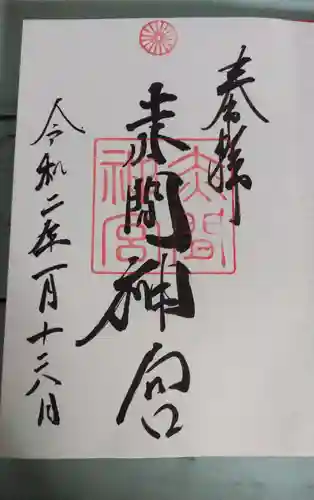 奉拝
赤間神宮
赤間
神宮
令和二年一月十日